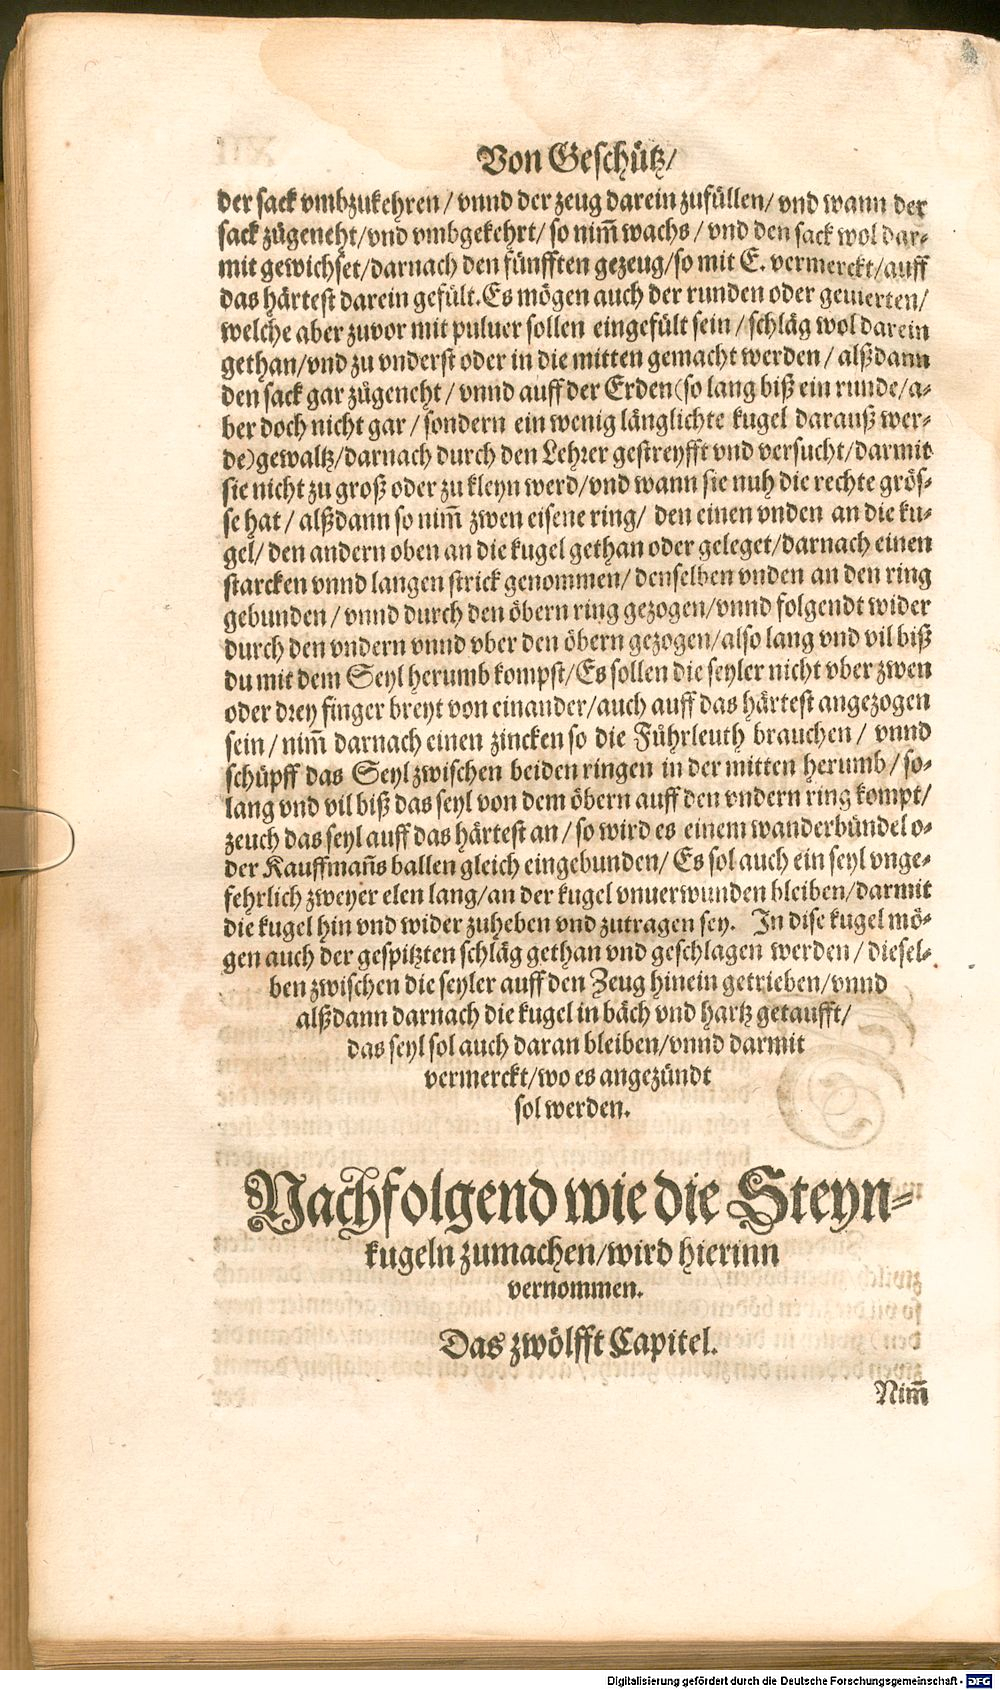 Von Geschütz/
der sack vmbzukehren/ vnnd der zeug darein zufüllen/ vnd wann der
sack zügeneht/vnd vmbgekehrt/ so nim̃ wachs/ vnd den sack wol dar-
mit gewichset/darnach den fünfften gezeug/so mit E. vermerckt/auff
das härtest darein gefült. Es mögen auch der runden oder geuierten/
welche aber zuvor mit puluer sollen eingefült sein/ schläg wol darein
gethan/vnd zu vnderst oder in die mitten gemacht werden/ alßdann
den sack gar zügeneht/ vnnd auff der Erden (so lang biß ein runde/a-
ber doch nicht gar/ sondern ein wenig länglichte kugel darauß wer-
de) gewaltz/darnach durch den Lehrer gestreyfft vnd versucht/darmit
sie nicht zu groß oder zu kleyn werd/vnd wann sie nuh die rechte grös-
se hat/ alßdann so nim̃ zwen eisene ring/ den einen vnden an die ku-
gel/ den andern oben an die kugel gethan oder geleget/darnach einen
starcken vnnd langen strick genommen/ denselben vnden an den ring
gebunden/ vnnd durch den öbern ring gezogen/vnnd folgendt wider
durch den vndern vnnd vber den öbern gezogen/also lang vnd vil biß
du mit dem Seyl herumb kompst/Es sollen die seyler nicht vber zwen
oder drey finger breyt von einander/auch auff das härtest angezogen
sein/ nim̃ darnach einen zincken so die Führleuth brauchen/ vnnd
schüpff das Seyl zwischen beiden ringen in der mitten herumb/ so-
lang vnd vil biß das seyl von dem öbern auff den vndern ring kompt/
zeuch das seyl auff das härtest an/ so wird es einem wanderbündel o-
der Kauffmañs ballen gleich eingebunden/ Es sol auch ein seyl vnge-
fehrlich zweyer elen lang/an der kugel vnuerwunden bleiben/darmit
die kugel hin vnd wider zuheben vnd zutragen sey. In dise kugel mö-
gen auch der gespitzten schläg gethan vnd geschlagen werden/ diesel-
ben zwischen die seyler auff den Zeug hinein getrieben/vnnd
alßdann darnach die kugel in bäch vnd hartz getaufft/
das seyl sol auch daran bleiben/vnnd darmit
vermerckt/wo es angezündt
sol werden.
Nachfolgend wie die Steyn-
kugeln zumachen/wird hierinn
vernommen.
Das zwölfft Capitel.
Nim̃
Digitalisierung gefördert durch die Deutsche Forschungsgemeinschaft - DFG